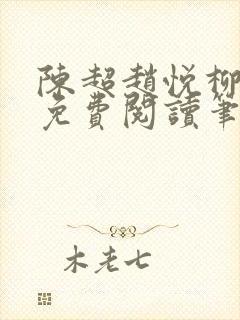 陳超趙悅柳
免費閱讀筆
木老七